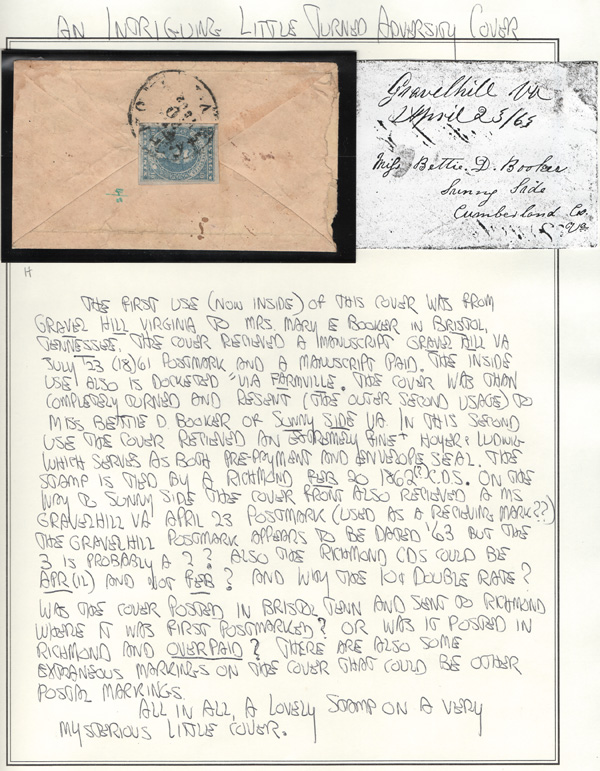 AN INTRIGUING LITTLE TURNED ADVERSITY COVER
Gravelhill Va
April 23/63
Miss Bettie. D. Booker
Sunny Side
Cumberland Co.
Va
H
THE FIRST USE (NOW INSIDE) OF THIS COVER WAS FROM
GRAVEL HILL VIRGINIA TO MRS. MARY E BOOKER IN BRISTOL,
TENNESSEE. THE COVER RECIEVED A MANUSCRIPT GRAVEL HILL VA
JULY 23 (18)61 POSTMARK AND A MANUSCRIPT PAID. THE INSIDE
USE ALSO IS DOCKETED "VIA FARMVILLE. THE COVER WAS THAN
COMPLETELY TURNED AND RESENT (THE OUTER SECOND USAGE) TO
MISS BETTIE D BOOKER OF SUNNY SIDE VA. IN THIS SECOND
USE THE COVER RECIEVED AN EXTREMELY FINE+ HOYER & LUDWIG
WHICH SERVES AS BOTH PRE-PAYMENT AND ENVELOPE SEAL. THE
STAMP IS TIED BY A RICHMOND FEB 20 1862(?) C.D.S. ON THE
WAY TO SUNNY SIDE THE COVER FRONT ALSO RECIEVED A MS
GRAVELHILL VA APRIL 23 POSTMARK (USED AS A RECIEVING MARK??)
THE GRAVELHILL POSTMARK APPEARS TO BE DATED 1/63 BUT THE
3 IS PROBABLY A 2? ALSO THE RICHMOND CDS COULD BE
APR(IL) AND NOT FEB? AND WHY THE 10¢ DOUBLE RATE?
WAS THE COVER POSTED IN BRISTOL TENN AND SENT TO RICHMOND
WHERE IT WAS FIRST POSTMARKED? OR WAS IT POSTED IN
RICHMOND AND OVERPAID? THERE ARE ALSO SOME
EXTRANEOUS MARKINGS ON THE COVER THAT COULD BE OTHER
POSTAL MARKINGS.
ALL IN ALL, A LOVELY STAMP ON A VERY
MYSTERIOUS LITTLE COVER.